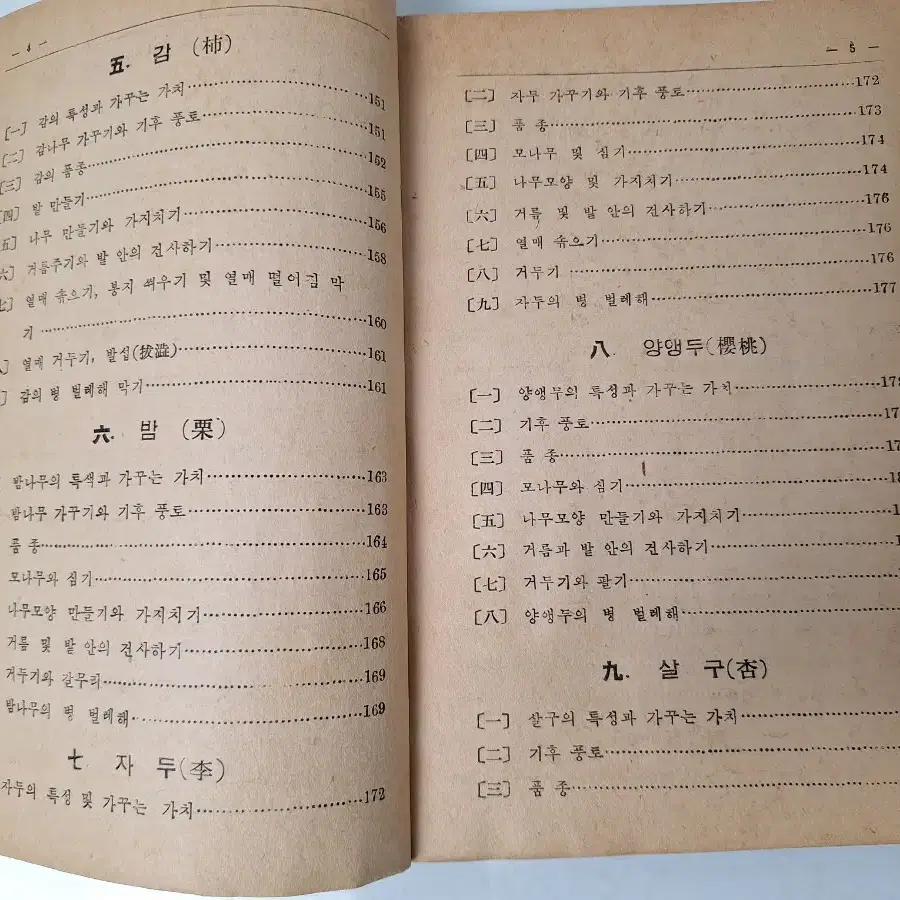 — 4 —
五. 감 (柿)
[一] 감의 특성과 가꾸는 가치……151
[二] 감나무 가꾸기와 기후 풍토……151
[三] 감의 품종……152
[四] 밭 만들기……155
[五] 나무 만들기와 가지치기……156
[六] 거름주기와 밭 안의 건사하기……158
[七] 열매 솎으기, 봉지 씌우기 및 열매 떨어짐 막
기……160
열매 거두기, 발삽(拔澁)……161
감의 병 벌레해 막기……161
六. 밤 (栗)
밤나무의 특색과 가꾸는 가치……163
밤나무 가꾸기와 기후 풍토……163
품종……164
모나무와 심기……165
나무모양 만들기와 가지치기……166
거름 및 밭 안의 건사하기……168
거두기와 갈무리……169
밤나무의 병 벌레해……169
七. 자 두(李)
자두의 특성 및 가꾸는 가치……172
— 5 —
[二] 자두 가꾸기와 기후 풍토……172
[三] 품종……173
[四] 모나무 및 심기……174
[五] 나무모양 및 가지치기……174
[六] 거름 및 밭 안의 건사하기……176
[七] 열매 솎으기……176
[八] 거두기……176
[九] 자두의 병 벌레해……177
八. 양앵두(櫻桃)
[一] 양앵두의 특성과 가꾸는 가치……
[二] 기후 풍토……
[三] 품종……
[四] 모나무와 심기……
[五] 나무모양 만들기와 가지치기……
[六] 거름과 밭 안의 건사하기……
[七] 거두기와 팔기……
[八] 양앵두의 병 벌레해……
九. 살 구(杏)
[一] 살구의 특성과 가꾸는 가치……
[二] 기후 풍토……
[三] 품종……